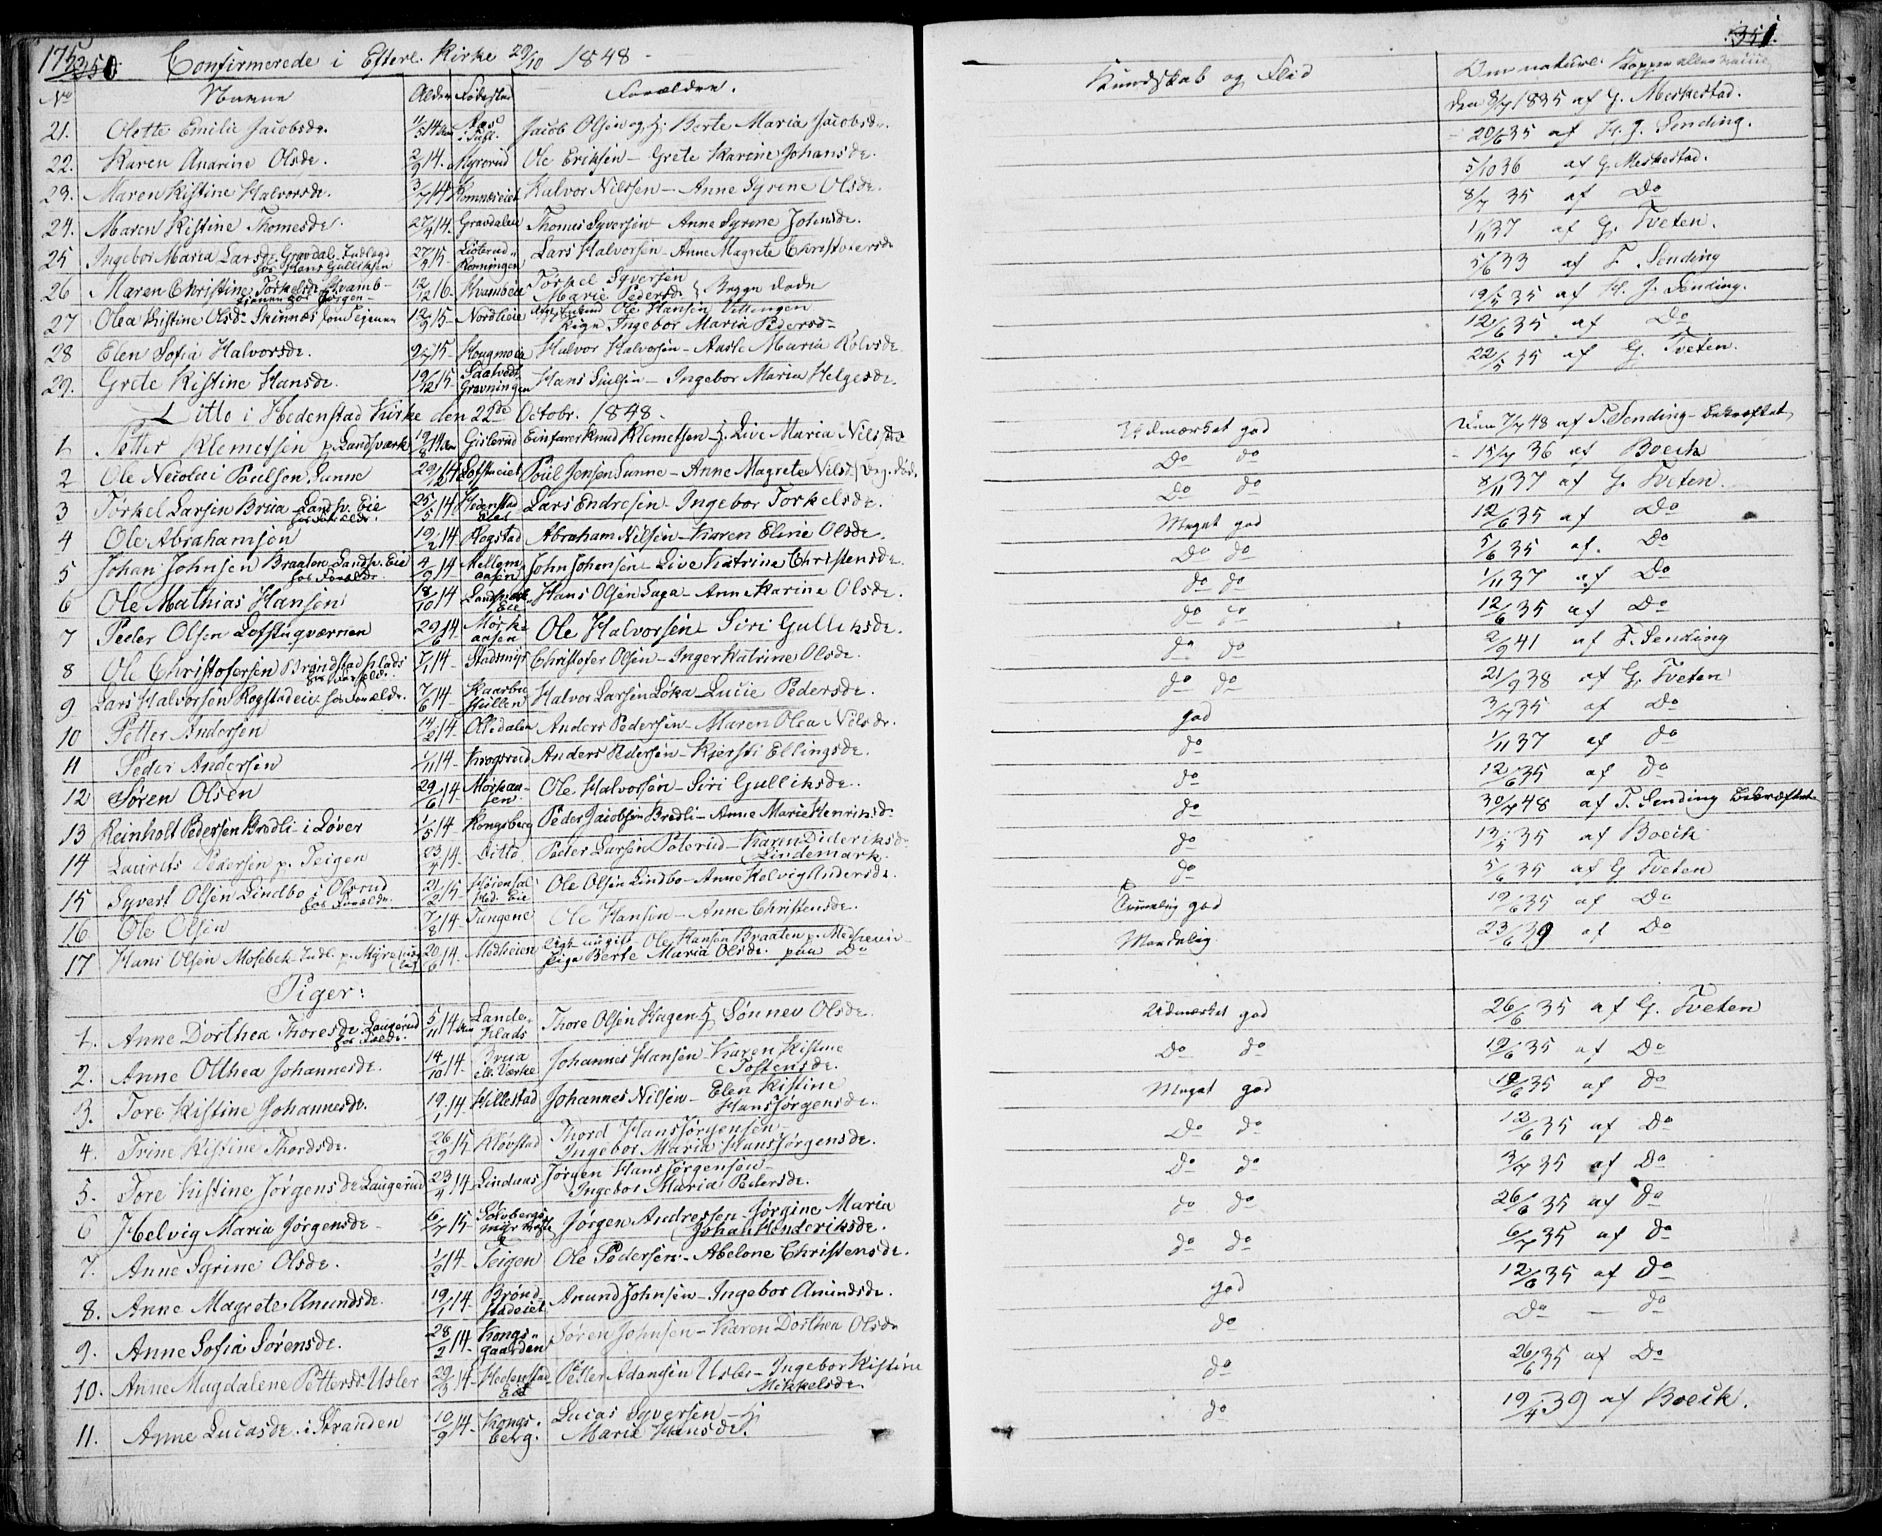 175 350 Confirmerede i Efterl. Kirke 29/10 1848.
No Navne Alder Fødested Forældre.
21. Olette Emilie Jacobsdr. 11/5 14 Aas i Sull. Jacob Olsen og H. Berte Maria Jacobsdr.
22. Karen Anarine Olsdr. 2/9 14. Myrorud Ole Eriksen – Grete Karine Johansdr.
23. Maren Kistine Halvorsdr. 3/7 14 Komnæseiet Halvor Nilssen – Anne Syrene Olsdr.
24. Maren Kistine Thomesdr. 27/4 14. Gravdalen Thomes Syversen – Anne Syrene Johnsdr.
25 Ingebor Maria Larsdr. Gravdal. Indlagd hos Hans Gulliksen 27/2 15. Rønningen Lars Halvorsen – Anne Magrete Christofersdr
26 Maren Christine Torkelsdr. Kvamb- 12/12 16. Kvambeie Torkel Syversen Marie Pedersdr. Begge døde
27 Olea Kistine Olsdr. Skinnæs 12/9 15. Nordlieie Ole Hansen Vittingen Pige Ingebor Maria Pedersdr
28 Elen Sofia Halvorsdr. 15. Hougmoen Halvor Halvorsen – Aaste Maria Rolvsdr
29. Grete Kistine Hansdr. 19/12 15. Saatvedt Gravningen Hans Paulsen – Ingebor Maria Helgesdr.
Ditto i Hedenstad Kirke den 22de Octobr. 1848.
1. Petter Klemetsen p. Landsværk 19/8 14 Gislerud Knud Klemetsen H. Live Maria Nilsdr
2 Ole Nicolai Poulsen Sunne 29/12 14 Lofstueiet Poul Jensen Sunne – Anne Magrete Nilsdr
3 Torkel Larsen Brua Landsv. Eie hos Foreldr. 25/5 14 Hedenstad Eiet Lars Endresen – Ingebor Torkelsdr.
4 Ole Abrahamsen 19/2 14 Rogstad Abraham Nilsen – Karen Eline Olsdr.
5 Johan Johnsen Braaten Landsv. Eie hos Foreldr. 4/9 14 Mellem aasen John Johansen – Live Katrine Christensdr.
6 Ole Mathias Hansen 18/10 14 Landsværk Eie Hans Olsen Saga – Anne Karine Olsdr.
7 Peder Olsen Lofstuqværnen 29/6 14 Mørke aasen Ole Halvorsen – Siri Gulliksdr.
8 Ole Christofersen Brøndstad plads hos Foreldr. 14 – Stadsmyr Christofer Olsen – Inger Katrine Olsdr.
9 Lars Halvorsen Rogstadeie hos Foreldr. 7/6 14 – Kaarbu Hullen Halvor Larsen Løka – Lucie Pedersdr.
10 Petter Andersen 14/2 14 Ollidalen Anders Pedersen – Maren Olea Nilsdr.
11 Peder Andersen 1/11 14 Krogsrud Anders Pedersen – Kjersti Ellingsdr.
12 Søren Olsen 29/6 14. Mørkaasen Ole Halvorsen – Siri Gulliksdr.
13 Reinholt Pedersen Bredli i Løver 1/5 14 Kongsberg Peder Jacobsen Bredli – Anne Marie Henriksdr
14 Laurits Pedersen p. Teigen 23/4 14. Ditto Peder Larsen Poterud – Karen Dideriksdr Lindemark.
15 Syvert Olsen Lindbo i Olsrud hos Foreldr. 21/2 15 Ole Olsen Lindbo – Anne Helvig Andersdr.
16 Ole Olsen 7/8 14 Tangene Ole Hansen – Anne Christensdr.
17 Hans Olsen Mosebek Indl. p. Myre 20/6 14. Medheien Ole Hansen Braaten p. Medheien Pige Berte Maria Olsdr. paa Do
Piger:
1. Anne Dorthea Thoresdr. Laugerud hos Foreldr. 5/11 14 Lande Plads Thore Olsen Hagen H. Sønnev Olsdr.
2. Anne Otthea Johannesdr. 14/10 14. Brua v. Værke Johannes Hansen – Karen Kistine Tostensdr.
3. Tore Kistine Johannesdr. 19/1 14 Hillestad Johannes Nilsen – Elen Kistine Hansjørgensdr.
4. Trine Kistine Thordsdr. 26/9 15 Klovstad Thord Hansjørgensen – Ingebor Maria Hansjørgensdr.
5. Tore Kistine Jørgensdr Laugerud 23/4 14 Lindaas Jørgen Hansjørgensen – Ingebor Maria Pedersdr.
6 Helvig Maria Jørgensdr. 6/7 15 Jørgen Andressen – Jørgine Maria Johan Henderiksdr.
7. Anne Syrine Olsdr. 1/2 14 Teigen Ole Pedersen – Abelone Christensdr.
8. Anne Magrete Anundsdr. 19/1 14. Brøndstadeiet Anund Johnsen – Ingebor Amundsdr.
9. Anne Sofia Sørensdr. 28/2 14 Kongsgaarden Søren Johnsen – Karen Dorthea Olsdr
10. Anne Magdalene Pettersdr Usler 29/3 14 – Hedenstad Eiet Petter Adamsen Usler – Ingebor Kistine Mikkelsdr
11. Anne Lucasdr. i Stranden 10/9 14 Kongsberg. Lucas Syversen – H. Maria Hansdr.
351.
Kundskab og Flid Om naturl. Kopper eller Vaccine
Den 8/7 1835 af G. Meskestad.
– 20/6 35 af H. J. Sending.
5/10 36 af G. Meskestad.
8/7 35 af Do
1/11 37 af G. Tveten.
5/6 33 af T. Sending
19/5 35 af H. J. Sending.
12/6 35 af Do
22/5 35 af G. Tveten.
Udmærket god Den 7/7 48 af T. Sending – bekræftet
Do do – 15/7 36 af Boeck
Do do 8/11 37 af G. Tveten.
Meget god 12/6 35 af Do
Do do 5/6 35 af. Do
do do 1/11 37 af Do
do do 12/6 35 af Do
do do 2/9 41 af T. Sending
do do 21/9 38 af G. Tveten
god 3/7 35 af Do
do 1/11 37 af do
do 12/6 35 af do
do 30/7 48 af T. Sending bekræftet
do 13/5 35 af Boeck
do 5/6 35 af G Tveten
Temmelig god 19/6 35 af Do
Maadelig 23/6 39 af Do
Udmærket god 26/6 35 af G. Tveten
Do do 19/6 35 af Do
Meget god 19/6 35 af do
Do do 12/6 35 af Do
Do do 3/7 35 af Do
do do 26/6 35 af do
do do 6/7 35 af do
god 12/6 35 af Do
do Do – do
do 26/6 35 af Do
do 19/4 39 af Boeck.